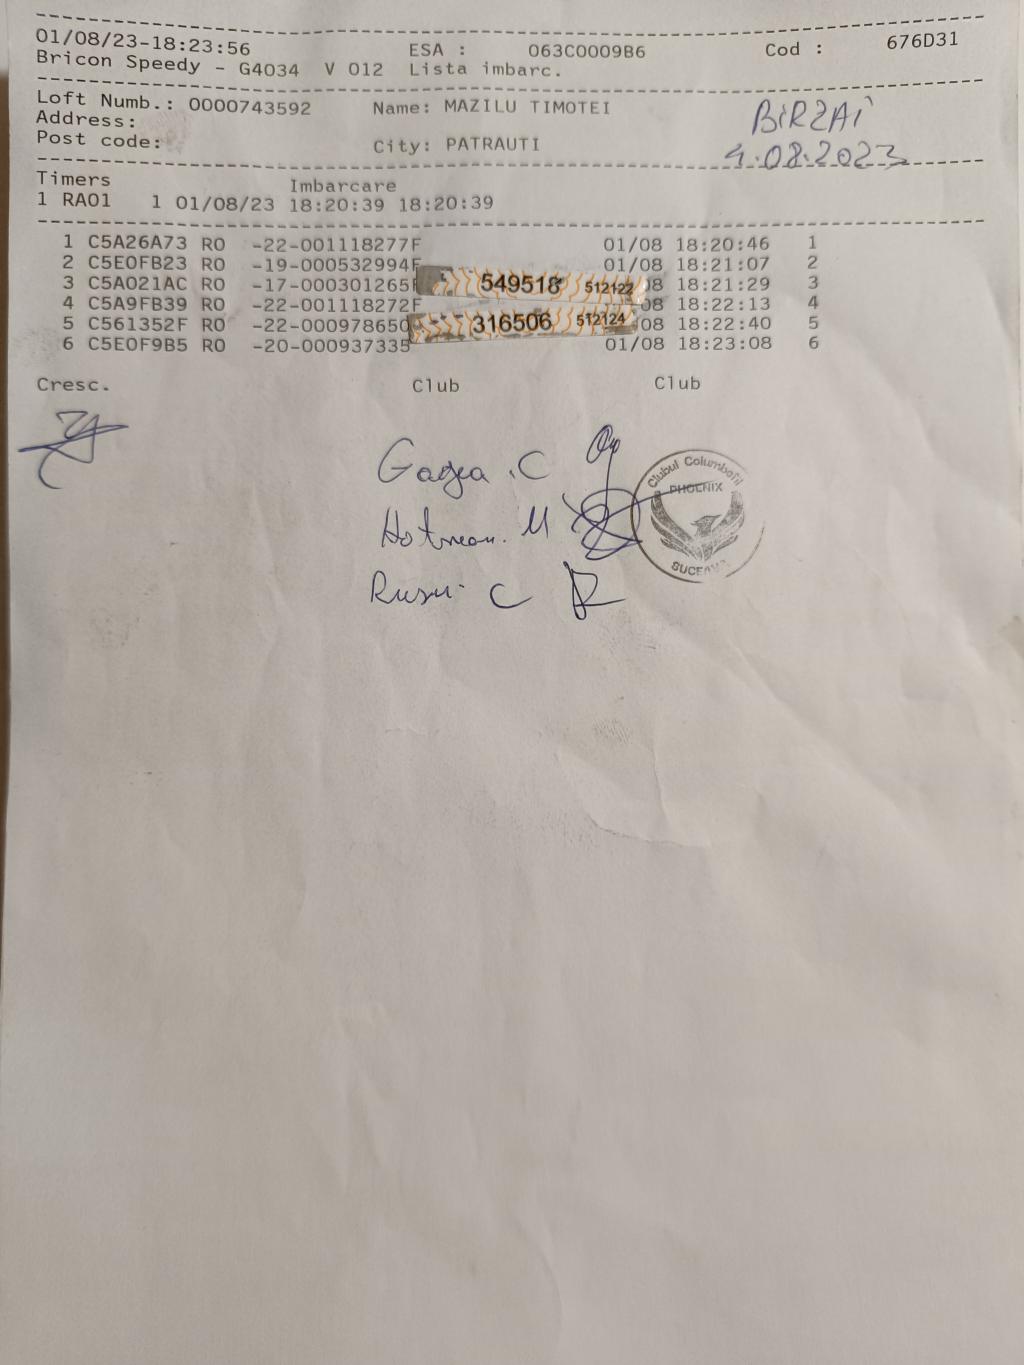 01/08/23-18:23:56 ESA : 063C0009B6 Cod : 676D31
Bricon Speedy - G4034 V 012 Lista imbarc.
Loft Numb.: 0000743592 Name: MAZILU TIMOTEI
BIRZAI
Address:
Post code: City: PATRAUTI
4.08.2023
Timers Imbarcare
1 RA01 1 01/08/23 18:20:39 18:20:39
1 C5A26A73 RO -22-001118277F 01/08 18:20:46 1
2 C5E0FB23 RO -19-000532994F 01/08 18:21:07 2
3 C5A021AC RO -17-000301265F 549518 512122 08 18:21:29 3
4 C5A9FB39 RO -22-001118272F 08 18:22:13 4
5 C561352F RO -22-000978650 316506 512124 08 18:22:40 5
6 C5E0F9B5 RO -20-000937335 01/08 18:23:08 6
Cresc. Club Club
Gagea .C
Hotnean. M
Rusu C
Clubul Columbofil
PHOENIX
SUCEAVA